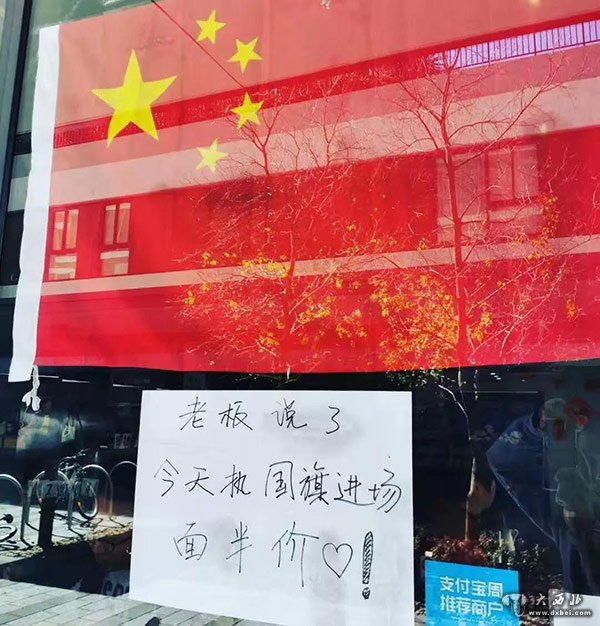 老板说了
今天执国旗进场
面半价♡！
支付宝周
推荐商户
大西北
www.dxbei.com